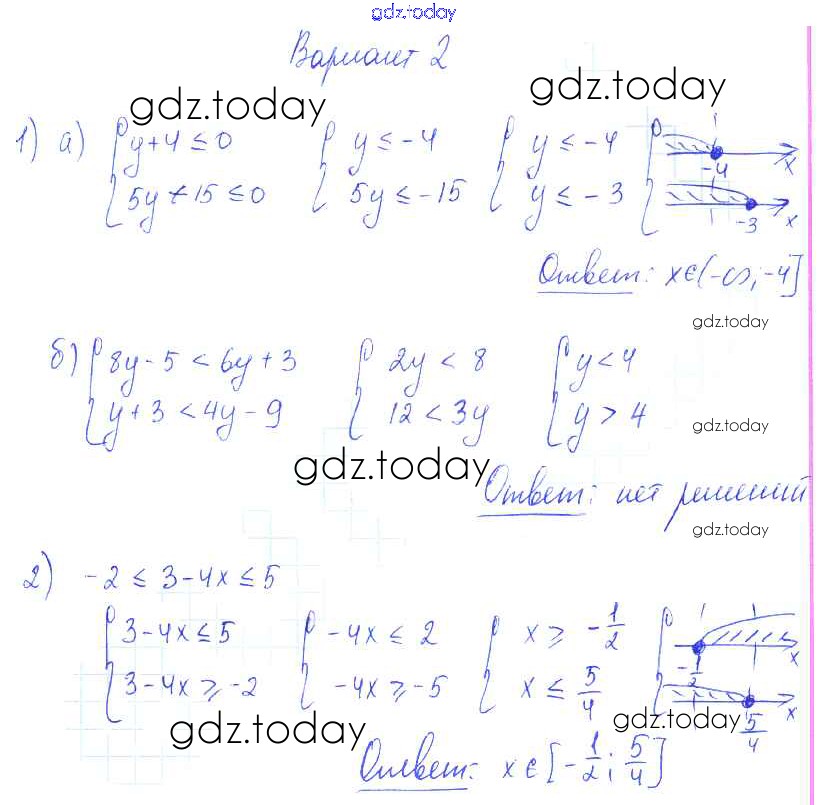 gdz.today
Вариант 2
gdz.today gdz.today
1) а) { y+4 ≤ 0 { y ≤ -4 { y ≤ -4 { -4 x
5y+15 ≤ 0 5y ≤ -15 y ≤ -3 -3 x
Ответ: x∈(-∞; -4]
gdz.today
б) { 8y-5 < 6y+3 { 2y < 8 { y < 4
y+3 < 4y-9 12 < 3y y > 4
gdz.today
gdz.today
Ответ: нет решений
gdz.today
2) -2 ≤ 3-4x ≤ 5
{ 3-4x ≤ 5 { -4x ≤ 2 { x ≥ -1/2 { -1/2 x
3-4x ≥ -2 -4x ≥ -5 x ≤ 5/4 5/4 x
gdz.today gdz.today
Ответ: x∈[-1/2; 5/4]